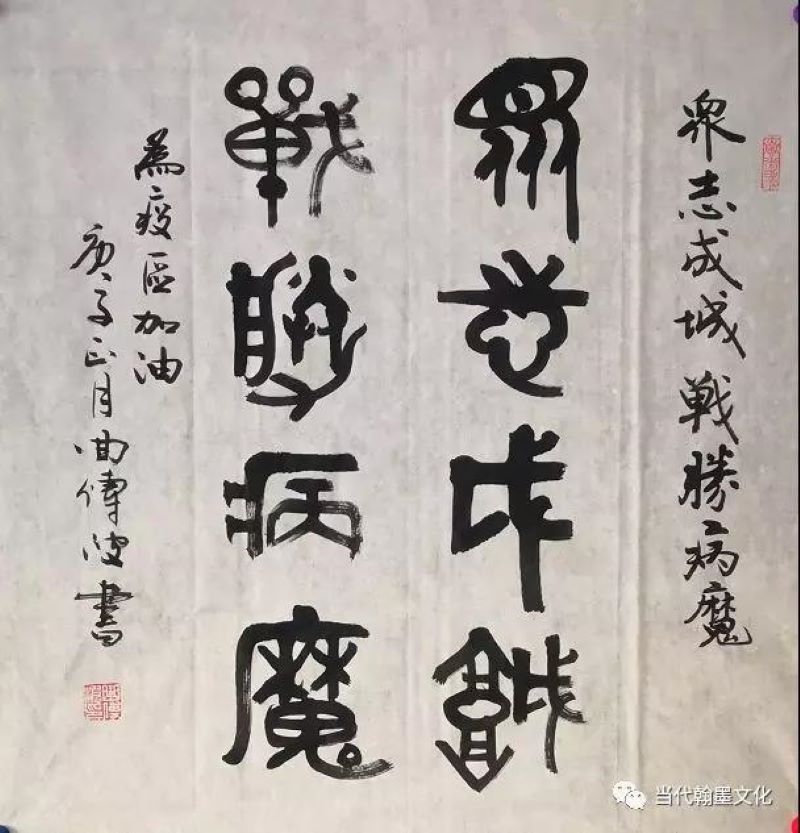 眾志成城 戰勝病魔
眾志成城
戰勝病魔
為疫區加油
庚子正月曲傳波書
当代翰墨文化